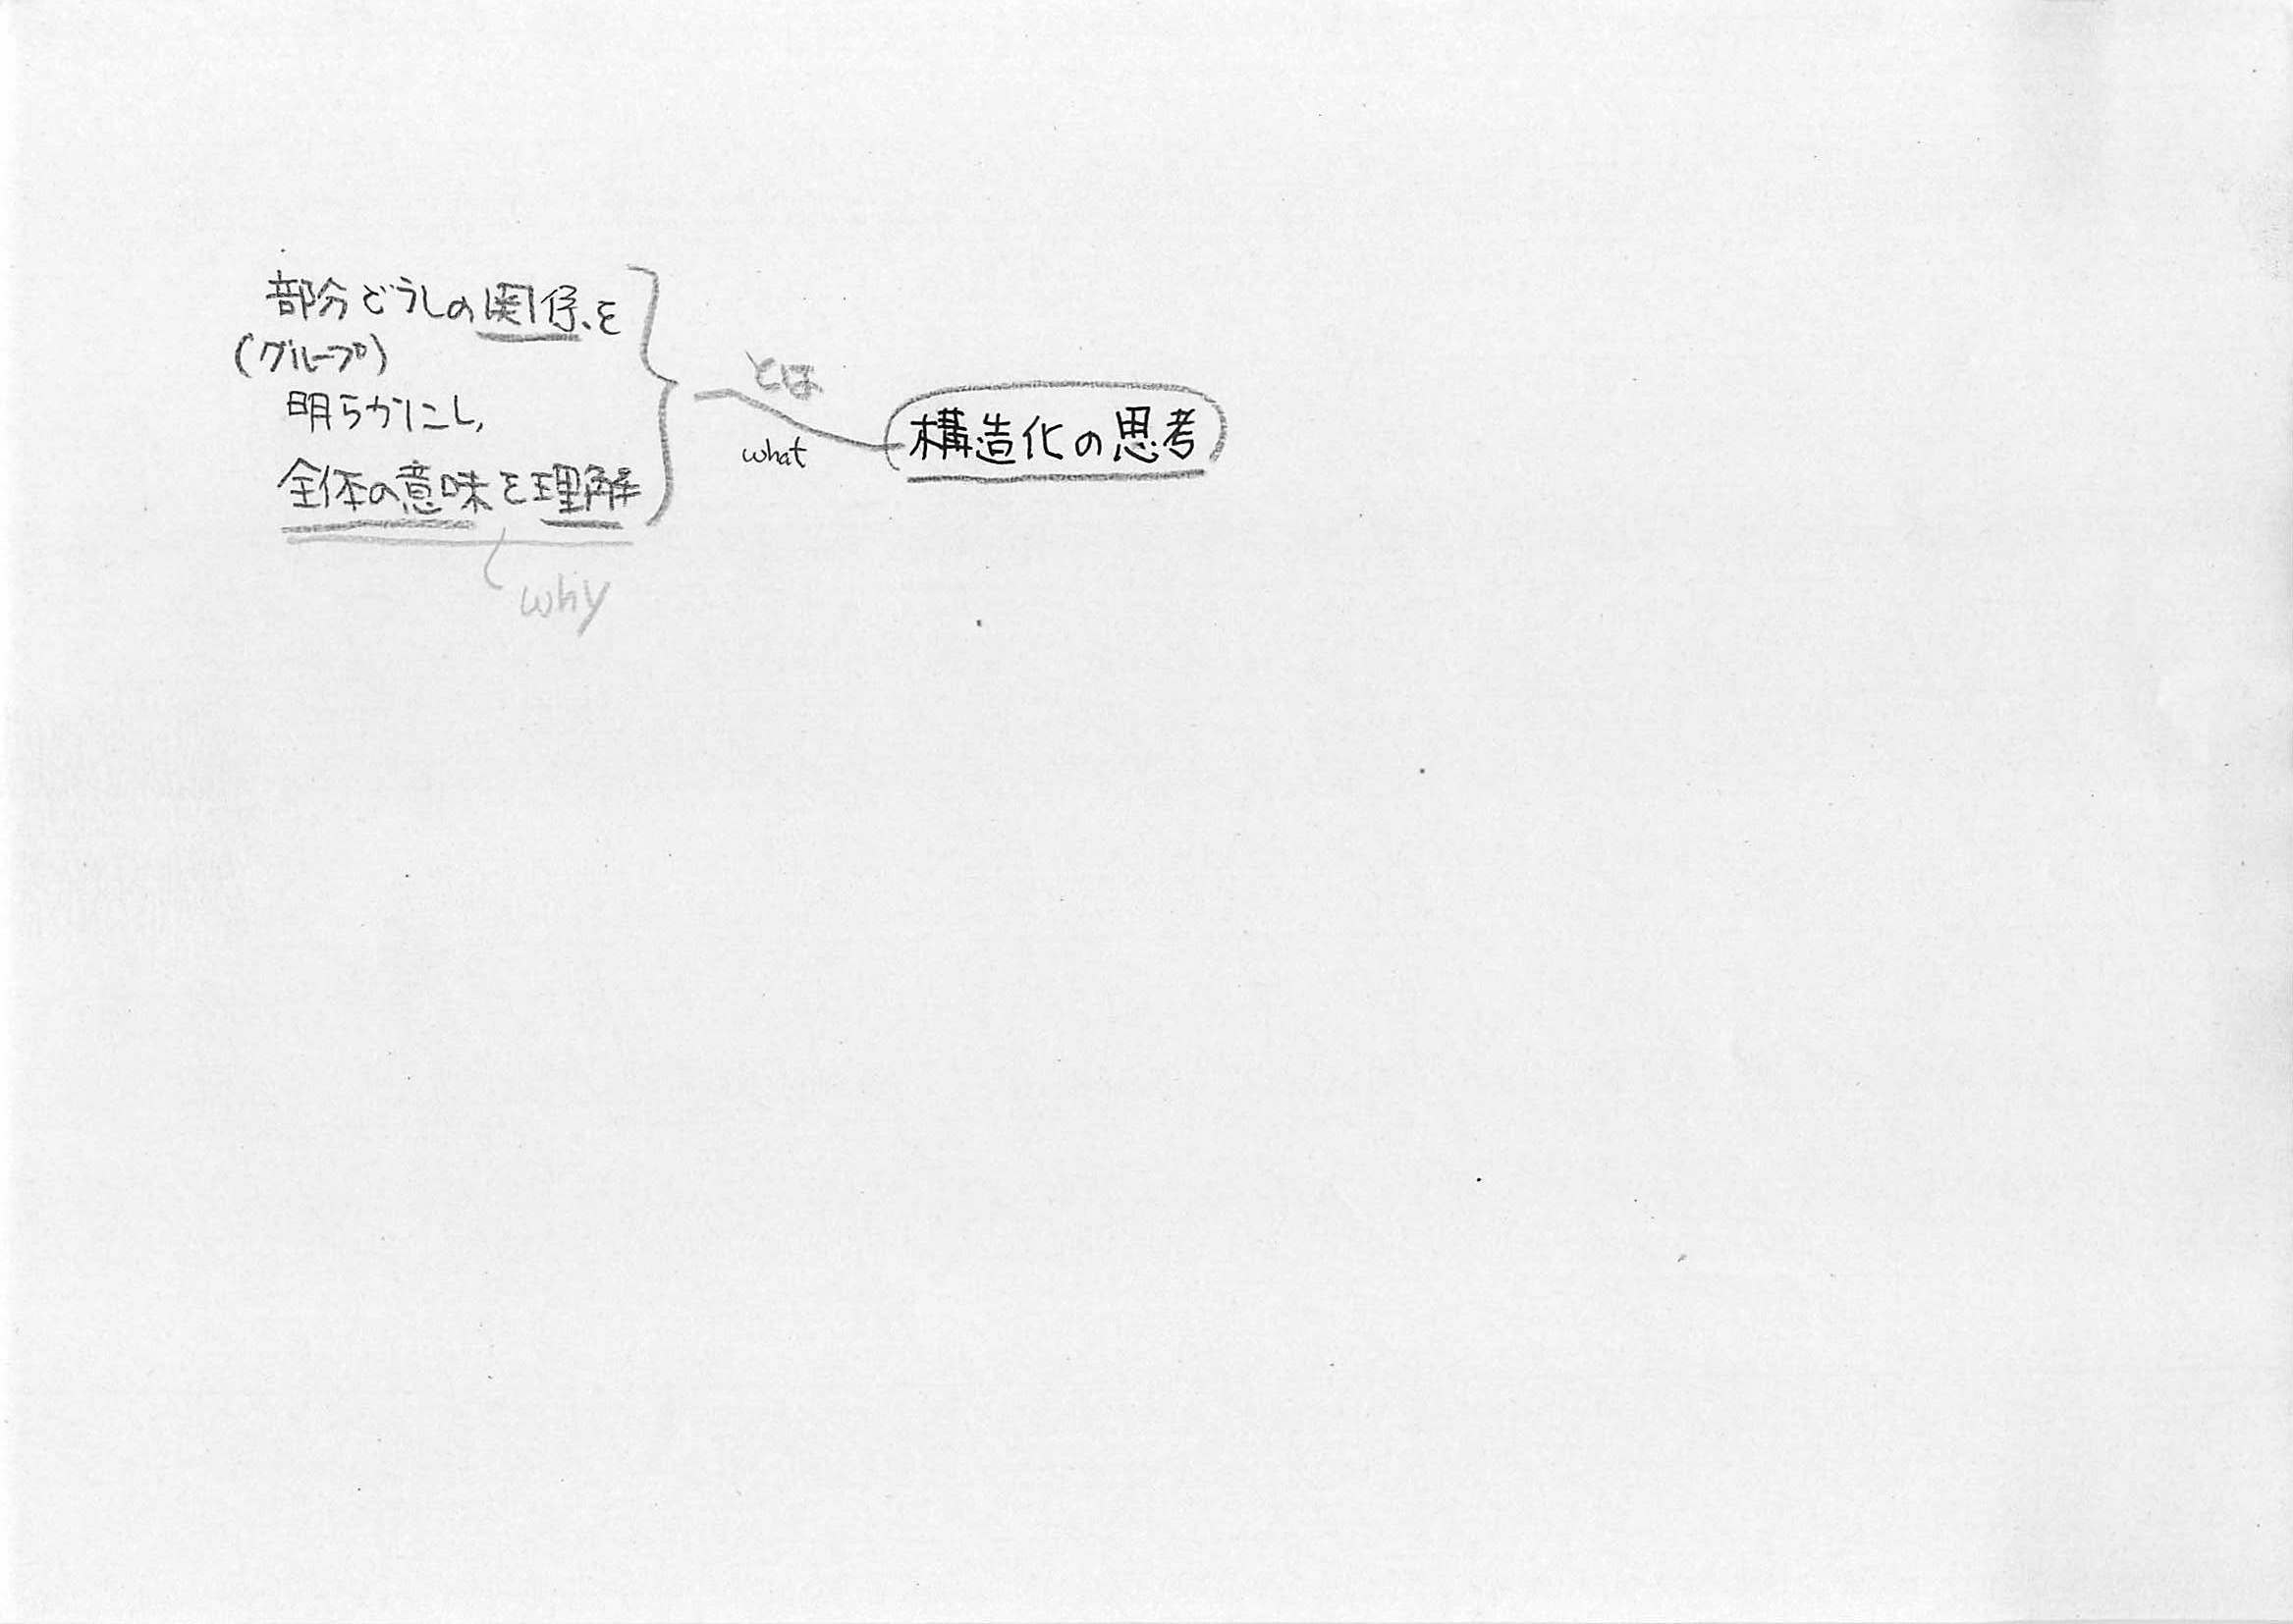 部分どうしの関係を
(グループ)
明らかにし,
全体の意味を理解
why
とは
what
構造化の思考